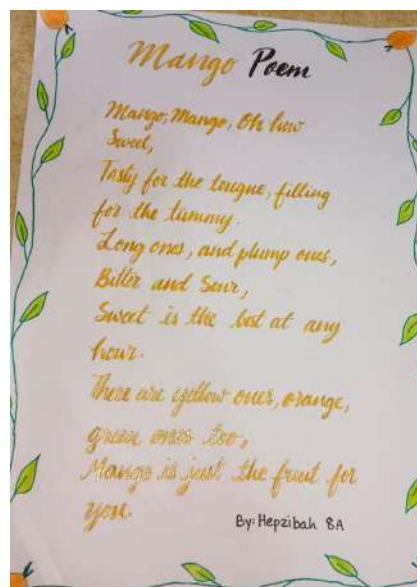 Mango Poem
Mango, Mango, Oh how
Sweet,
Tasty for the tongue, filling
for the tummy.
Long ones, and plump ones,
Bitter and Sour,
Sweet is the best at any
hour.
There are yellow ones, orange,
green ones too,
Mango is just the fruit for
you.
By: Hepzibah 8A